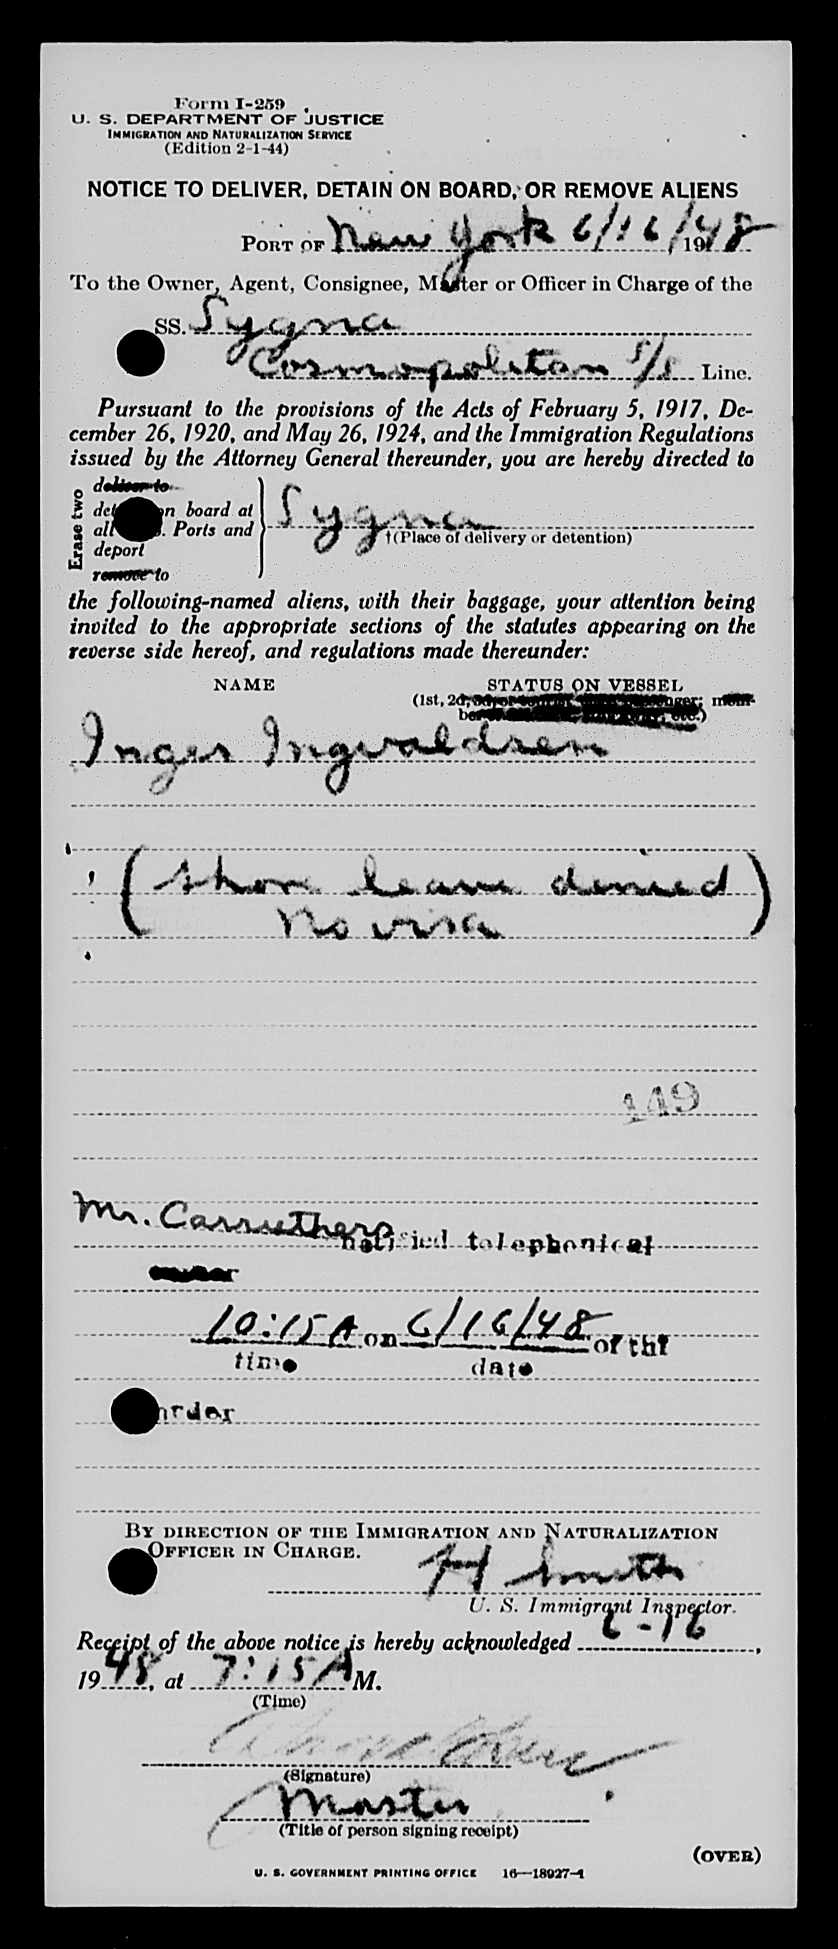 Form I-259
U. S. DEPARTMENT OF JUSTICE
IMMIGRATION AND NATURALIZATION SERVICE
(Edition 2-1-44)
NOTICE TO DELIVER, DETAIN ON BOARD, OR REMOVE ALIENS
PORT OF New York 6/16/1948
To the Owner, Agent, Consignee, Master or Officer in Charge of the
SS. Sygna
Cosmopolitan S/S Line.
Pursuant to the provisions of the Acts of February 5, 1917, De-
cember 26, 1920, and May 26, 1924, and the Immigration Regulations
issued by the Attorney General thereunder, you are hereby directed to
Erase two
deliver to
det n board at
all . Ports and
deport
remove to
Sygna
†(Place of delivery or detention)
the following-named aliens, with their baggage, your attention being
invited to the appropriate sections of the statutes appearing on the
reverse side hereof, and regulations made thereunder:
NAME STATUS ON VESSEL
(1st, 2d, mem-
etc.)
Inger Ingvaldsen
(Shore leave denied)
No visa
149
Mr. Carruthers notified telephonical
10:15 A on 6/16/48 of the
time date
order
BY DIRECTION OF THE IMMIGRATION AND NATURALIZATION
OFFICER IN CHARGE.
H Smith
U. S. Immigrant Inspector.
Receipt of the above notice is hereby acknowledged 6-16,
1948, at 7:15 A M.
(Time)
(Signature)
Master
(Title of person signing receipt)
(OVER)
U. S. GOVERNMENT PRINTING OFFICE 16—18927-1